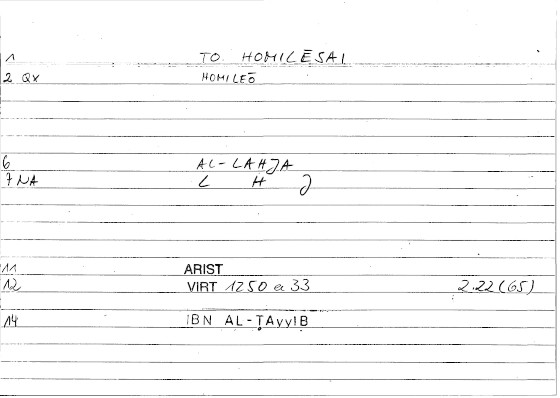 1 TO HOMILĒSAI
2 QX HOMILEŌ
6 AL-LAHJA
7 NA L H J
11 ARIST
12 VIRT 1250 a 33 2.22 (65)
14 IBN AL-ṬAyyIB